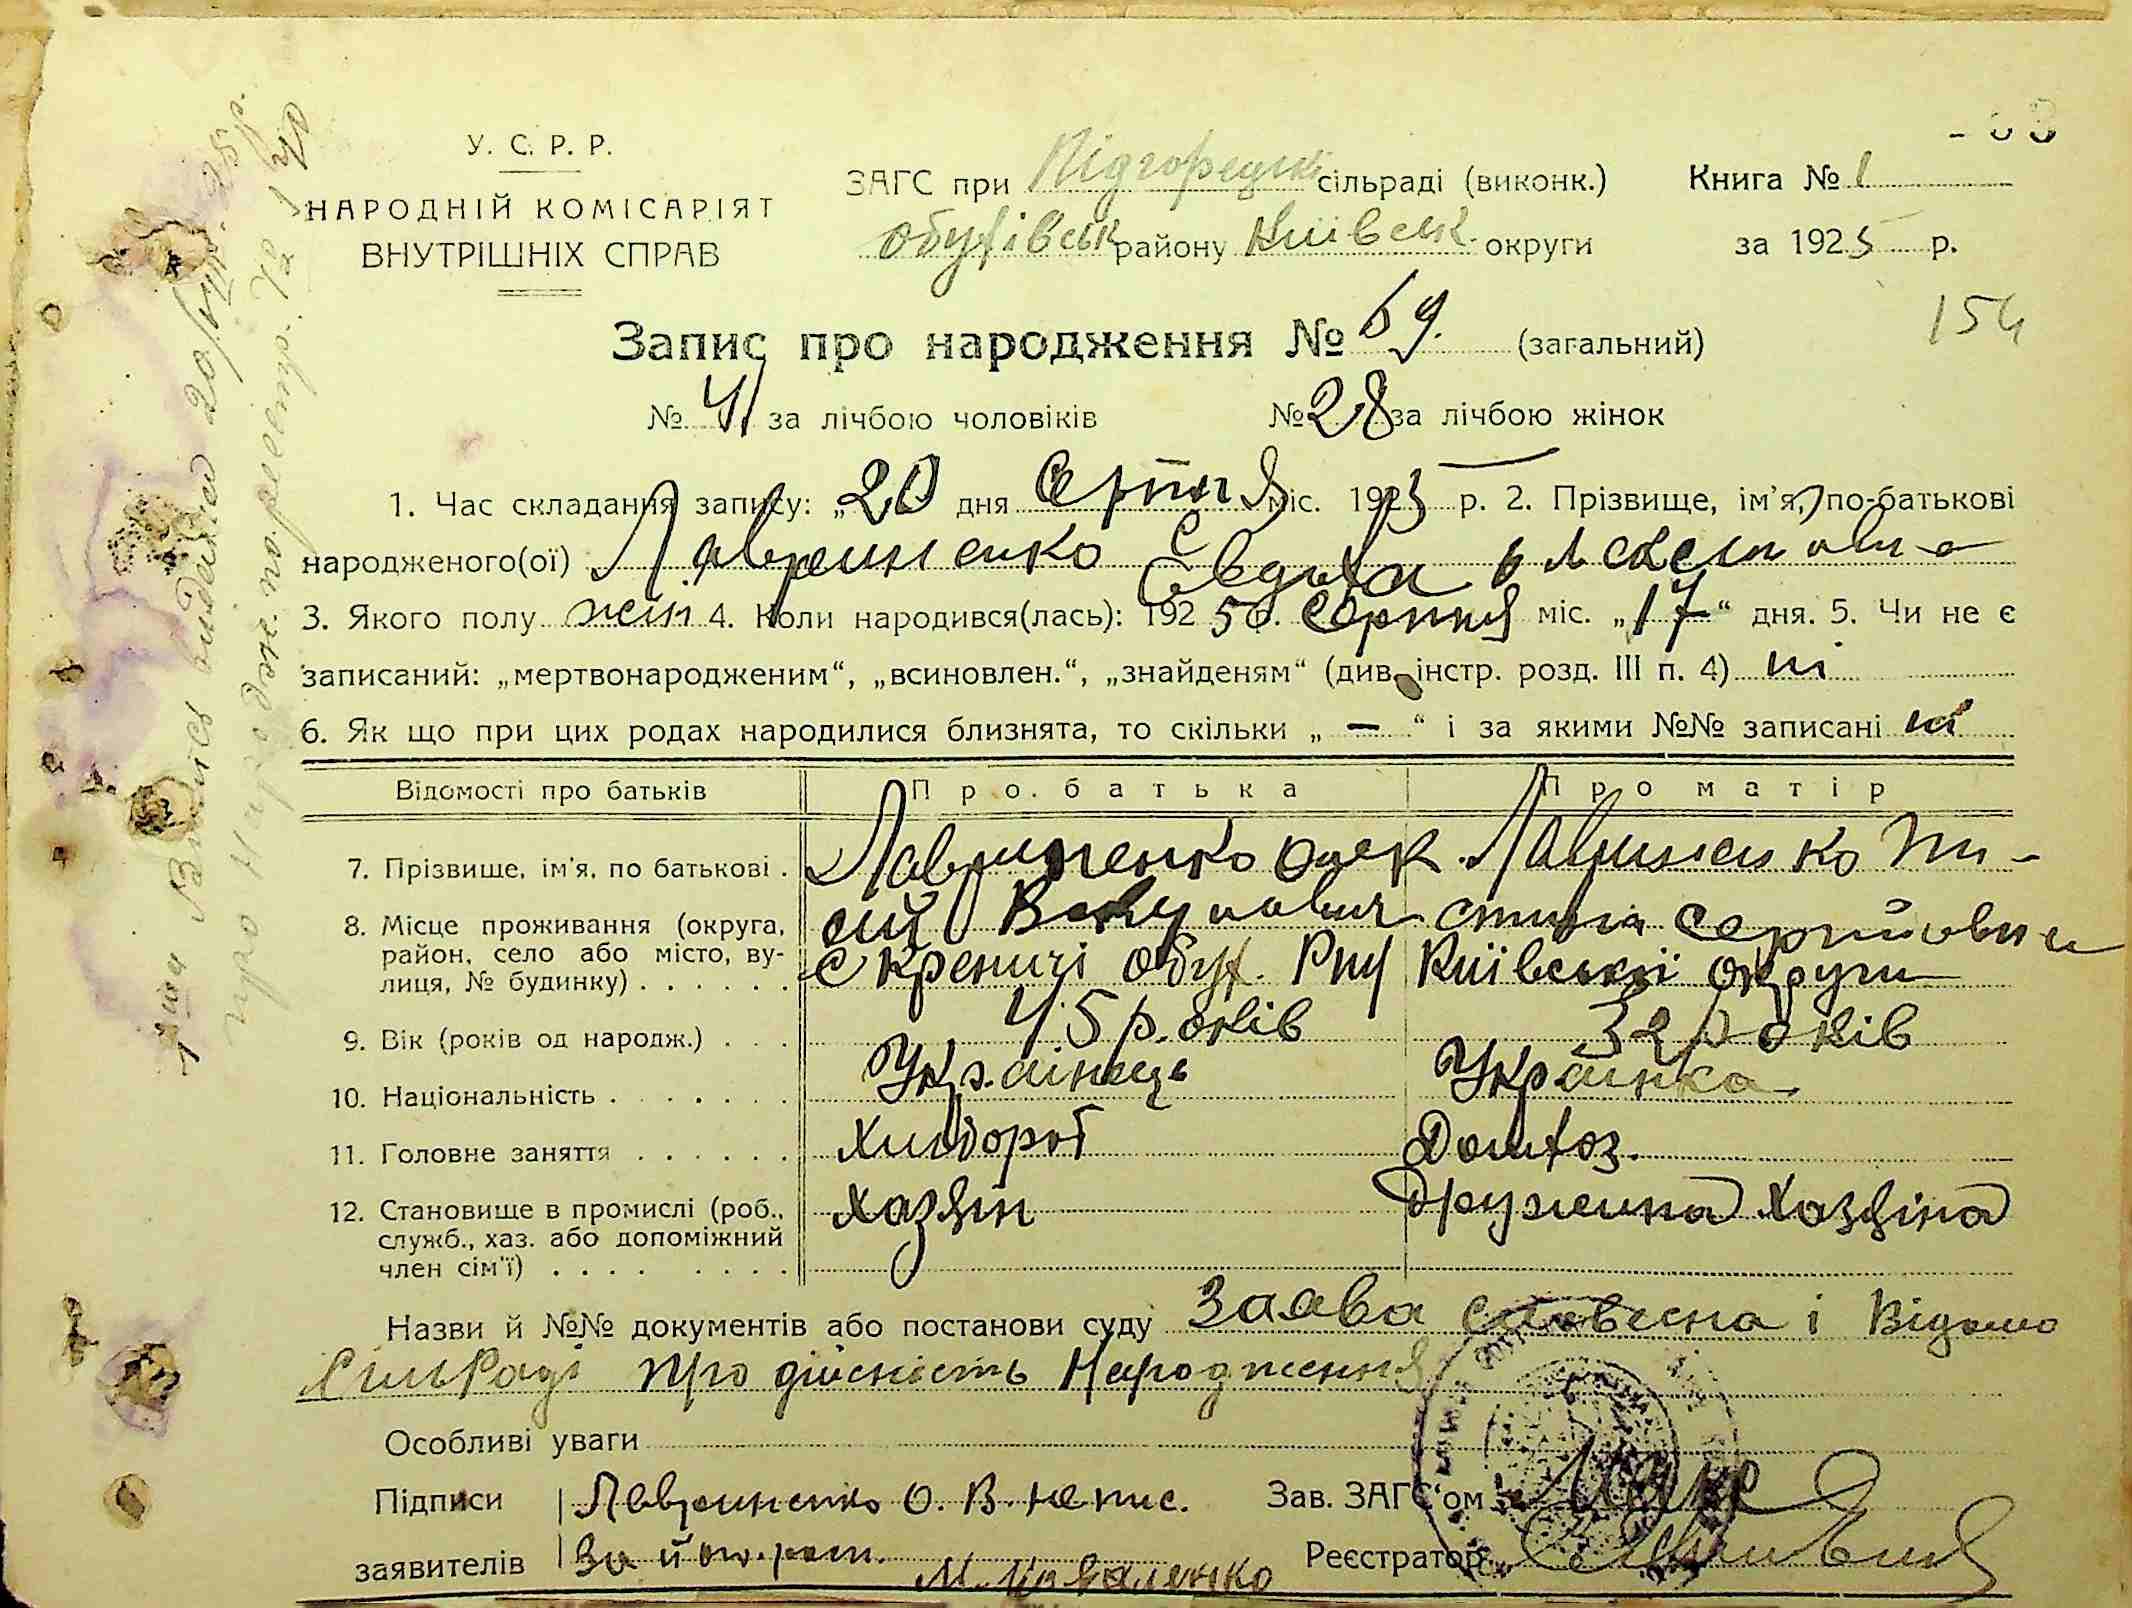 У. С. Р. Р.
НАРОДНІЙ КОМІСАРІЯТ
ВНУТРІШНІХ СПРАВ
ЗАГС при Підгорецкі сільраді (виконк.)
Обухівськ району Київськ. округи
Книга № 1
за 1925 р.
154
Запис про народження № 69. (загальний)
№ 41 за лічбою чоловіків № 28 за лічбою жінок
1. Час складання запису: „20 дня Серпня міс. 1925 р. 2. Прізвище, ім'я, по-батькові
народженого(ої) Лавриненко Євдоха
3. Якого полу жін 4. Коли народився(лась): 1925 р. Серпня міс. „17“ дня. 5. Чи не є
записаний: „мертвонародженим“, „всиновлен.“, „знайденям“ (див. інстр. розд. III п. 4) ні
6. Як що при цих родах народилися близнята, то скільки „ — “ і за якими №№ записані ні
Відомості про батьків Про батька Про матір
7. Прізвище, ім'я, по батькові . Лавриненко Олек Лавриненко
сій Сергійовна
8. Місце проживання (округа, район, село або місто, вулиця, № будинку) . . . . . . с Креничі Обух. Рну Київської округи
9. Вік (років од народж.) . . . 45 років 32 років
10. Національність . . . . . . . Українець Українка
11. Головне заняття . . . . . . Хлібороб Домхоз.
12. Становище в промислі (роб., служб., хаз. або допоміжний член сім'ї) . . . . . . . . Хазяін Дружина Хазяіна
Назви й №№ документів або постанови суду Заява словесна і Відомо
Сільраді про дійсність Народження
Особливі уваги
Підписи Лавриненко О. В. непис.
заявителів За його М. Коваленко
Зав. ЗАГС'ом
Реєстратор